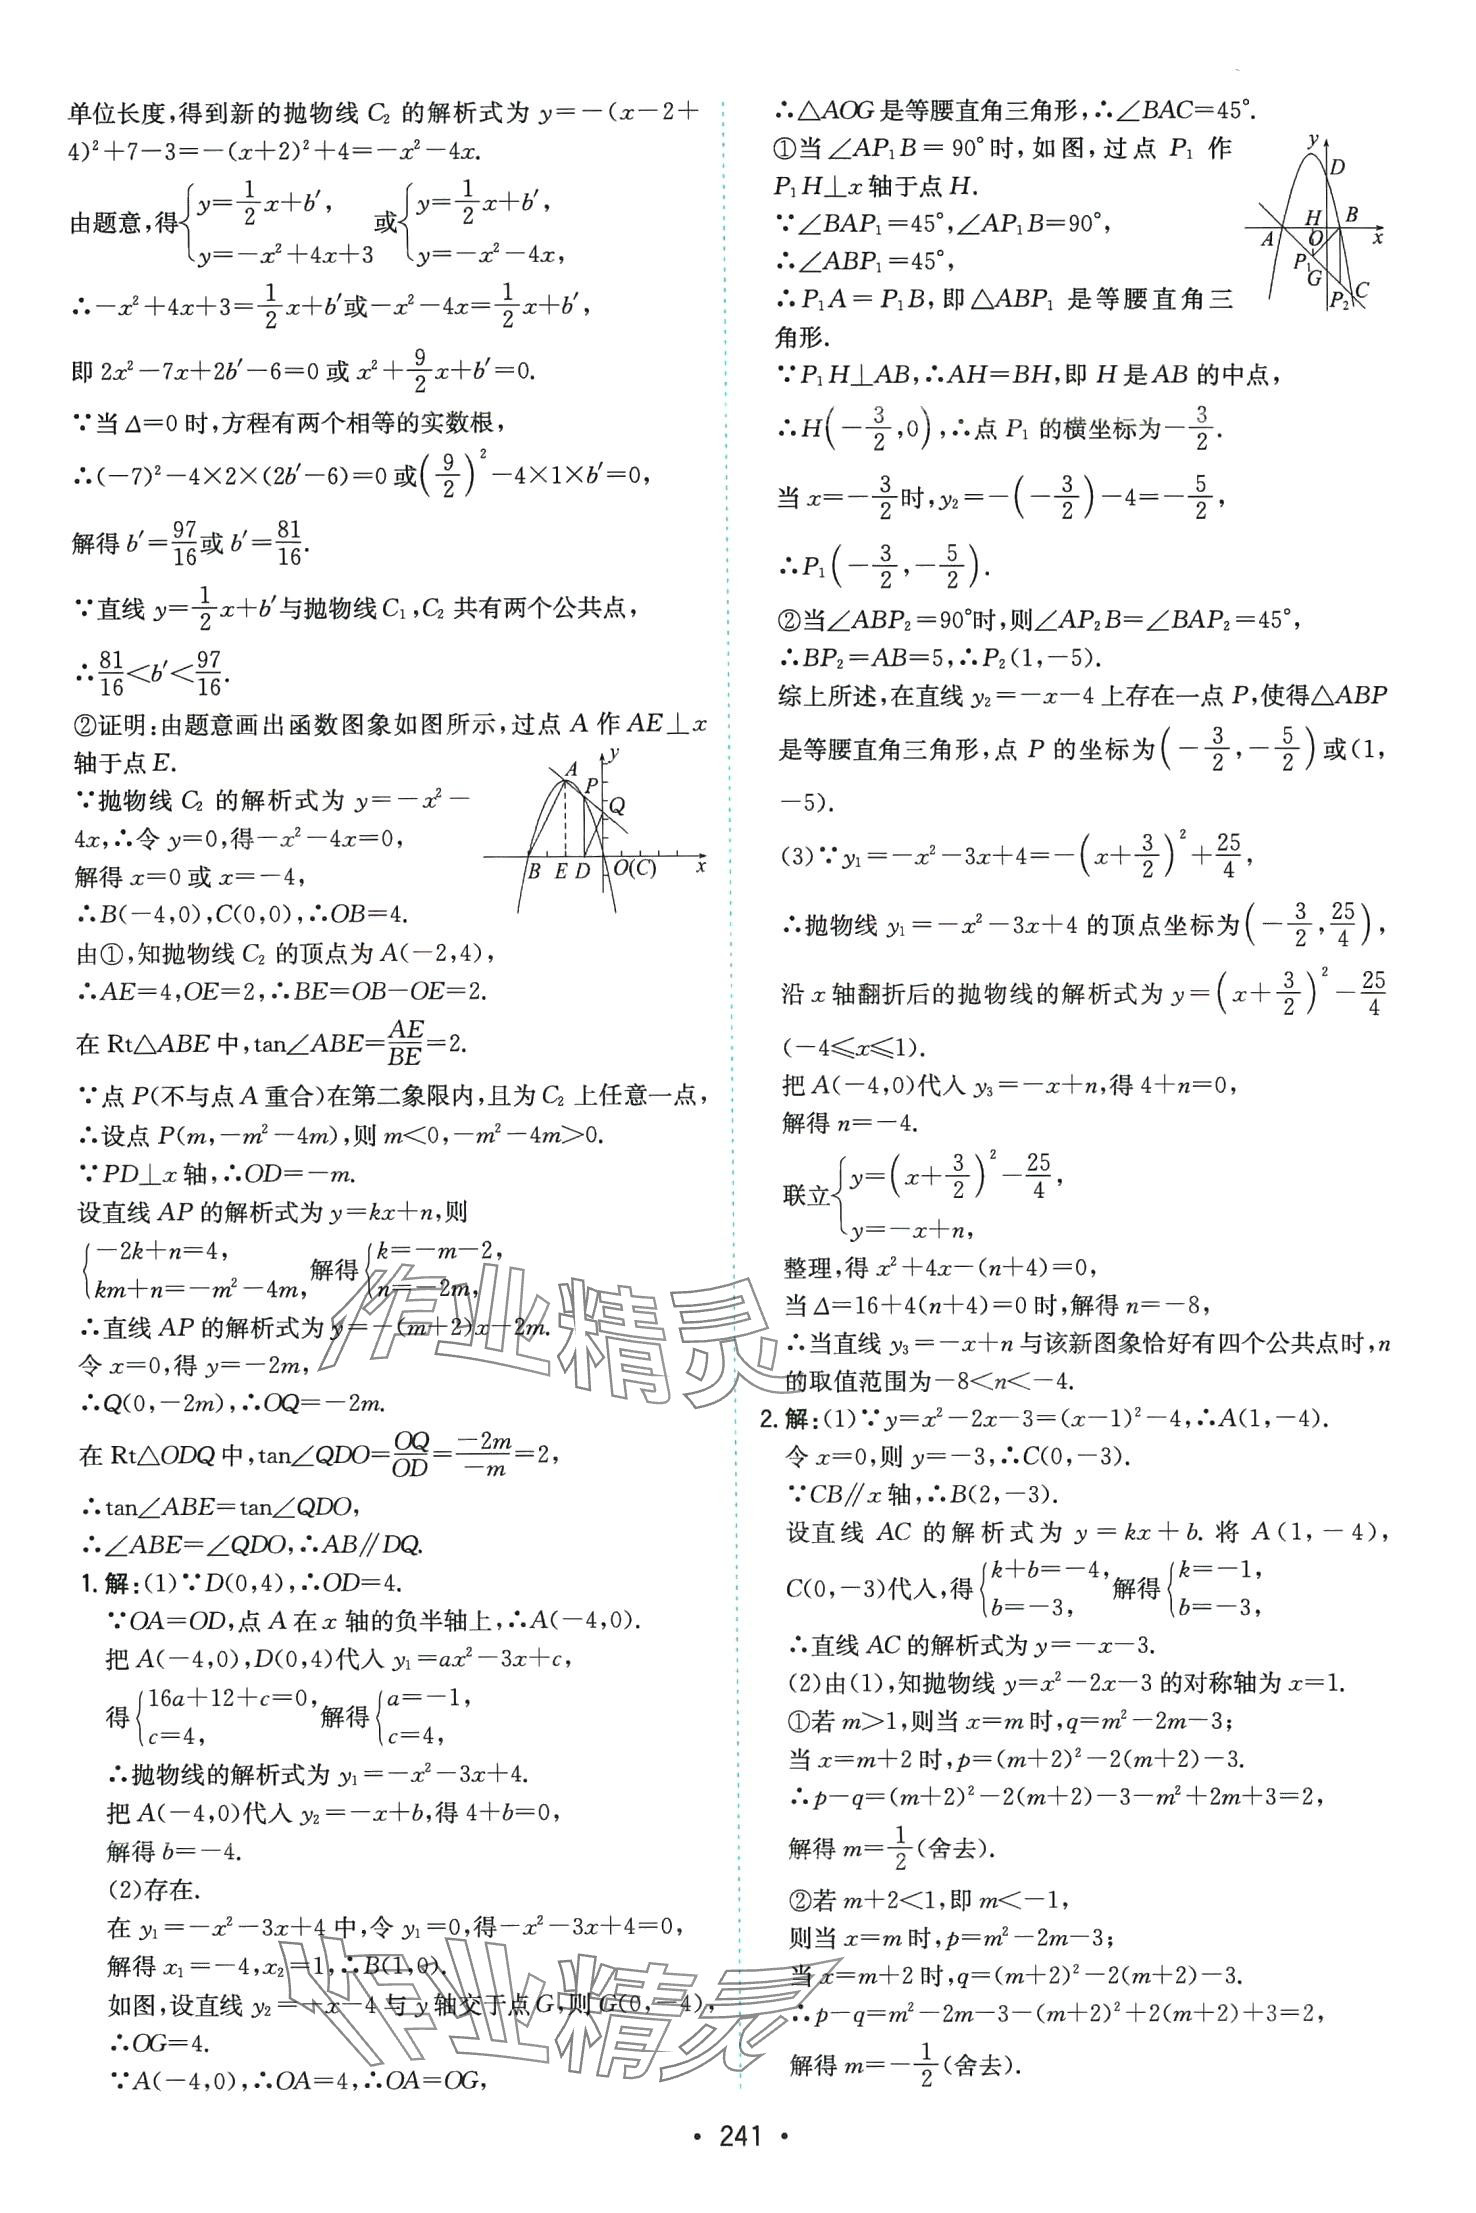 单位长度,得到新的抛物线 C₂ 的解析式为 y=-(x-2+
4)²+7-3=-(x+2)²+4=-x²-4x.
由题意,得{y=1/2x+b′, y=-x²+4x+3 或{y=1/2x+b′, y=-x²-4x,
∴-x²+4x+3=1/2x+b′或-x²-4x=1/2x+b′,
即 2x²-7x+2b′-6=0 或 x²+9/2x+b′=0.
∵当 Δ=0 时,方程有两个相等的实数根,
∴(-7)²-4×2×(2b′-6)=0 或(9/2)²-4×1×b′=0,
解得 b′=97/16或 b′=81/16.
∵直线 y=1/2x+b′与抛物线 C₁,C₂ 共有两个公共点,
∴81/16<b′<97/16.
②证明:由题意画出函数图象如图所示,过点 A 作 AE⊥x
轴于点 E.
∵抛物线 C₂ 的解析式为 y=-x²-
4x,∴令 y=0,得-x²-4x=0,
解得 x=0 或 x=-4,
∴B(-4,0),C(0,0),∴OB=4.
y
A
P
Q
B E D O(C) x
由①,知抛物线 C₂ 的顶点为 A(-2,4),
∴AE=4,OE=2,∴BE=OB-OE=2.
在 Rt△ABE 中,tan∠ABE=AE/BE=2.
∵点 P(不与点 A 重合)在第二象限内,且为 C₂ 上任意一点,
∴设点 P(m,-m²-4m),则 m<0,-m²-4m>0.
∵PD⊥x 轴,∴OD=-m.
设直线 AP 的解析式为 y=kx+n,则
{-2k+n=4, km+n=-m²-4m, 解得{k=-m-2, n=-2m,
∴直线 AP 的解析式为 y=-(m+2)x-2m.
令 x=0,得 y=-2m,
∴Q(0,-2m),∴OQ=-2m.
在 Rt△ODQ 中,tan∠QDO=OQ/OD=-2m/-m=2,
∴tan∠ABE=tan∠QDO,
∴∠ABE=∠QDO,∴AB∥DQ.
1. 解:(1)∵D(0,4),∴OD=4.
∵OA=OD,点 A 在 x 轴的负半轴上,∴A(-4,0).
把 A(-4,0),D(0,4)代入 y₁=ax²-3x+c,
得{16a+12+c=0, c=4, 解得{a=-1, c=4,
∴抛物线的解析式为 y₁=-x²-3x+4.
把 A(-4,0)代入 y₂=-x+b,得 4+b=0,
解得 b=-4.
(2)存在.
在 y₁=-x²-3x+4 中,令 y₁=0,得-x²-3x+4=0,
解得 x₁=-4,x₂=1,∴B(1,0).
如图,设直线 y₂=-x-4 与 y 轴交于点 G,则 G(0,-4),
∴OG=4.
∵A(-4,0),∴OA=4,∴OA=OG,
∴△AOG 是等腰直角三角形,∴∠BAC=45°.
①当∠AP₁B=90°时,如图,过点 P₁ 作
P₁H⊥x 轴于点 H.
∵∠BAP₁=45°,∠AP₁B=90°,
∴∠ABP₁=45°,
∴P₁A=P₁B,即△ABP₁ 是等腰直角三
角形.
y
D
H B
A O x
P₁
G
P₂ C
∵P₁H⊥AB,∴AH=BH,即 H 是 AB 的中点,
∴H(-3/2,0),∴点 P₁ 的横坐标为-3/2.
当 x=-3/2时,y₂=-(-3/2)-4=-5/2,
∴P₁(-3/2,-5/2).
②当∠ABP₂=90°时,则∠AP₂B=∠BAP₂=45°,
∴BP₂=AB=5,∴P₂(1,-5).
综上所述,在直线 y₂=-x-4 上存在一点 P,使得△ABP
是等腰直角三角形,点 P 的坐标为(-3/2,-5/2)或(1,
-5).
(3)∵y₁=-x²-3x+4=-(x+3/2)²+25/4,
∴抛物线 y₁=-x²-3x+4 的顶点坐标为(-3/2,25/4),
沿 x 轴翻折后的抛物线的解析式为 y=(x+3/2)²-25/4
(-4≤x≤1).
把 A(-4,0)代入 y₃=-x+n,得 4+n=0,
解得 n=-4.
联立{y=(x+3/2)²-25/4, y=-x+n,
整理,得 x²+4x-(n+4)=0,
当 Δ=16+4(n+4)=0 时,解得 n=-8,
∴当直线 y₃=-x+n 与该新图象恰好有四个公共点时,n
的取值范围为-8<n<-4.
2. 解:(1)∵y=x²-2x-3=(x-1)²-4,∴A(1,-4).
令 x=0,则 y=-3,∴C(0,-3).
∵CB∥x 轴,∴B(2,-3).
设直线 AC 的解析式为 y=kx+b. 将 A(1,-4),
C(0,-3)代入,得{k+b=-4, b=-3, 解得{k=-1, b=-3,
∴直线 AC 的解析式为 y=-x-3.
(2)由(1),知抛物线 y=x²-2x-3 的对称轴为 x=1.
①若 m>1,则当 x=m 时,q=m²-2m-3;
当 x=m+2 时,p=(m+2)²-2(m+2)-3.
∴p-q=(m+2)²-2(m+2)-3-m²+2m+3=2,
解得 m=1/2(舍去).
②若 m+2<1,即 m<-1,
则当 x=m 时,p=m²-2m-3;
当 x=m+2 时,q=(m+2)²-2(m+2)-3.
∴p-q=m²-2m-3-(m+2)²+2(m+2)+3=2,
解得 m=-1/2(舍去).
作业精灵
作业精灵
• 241 •